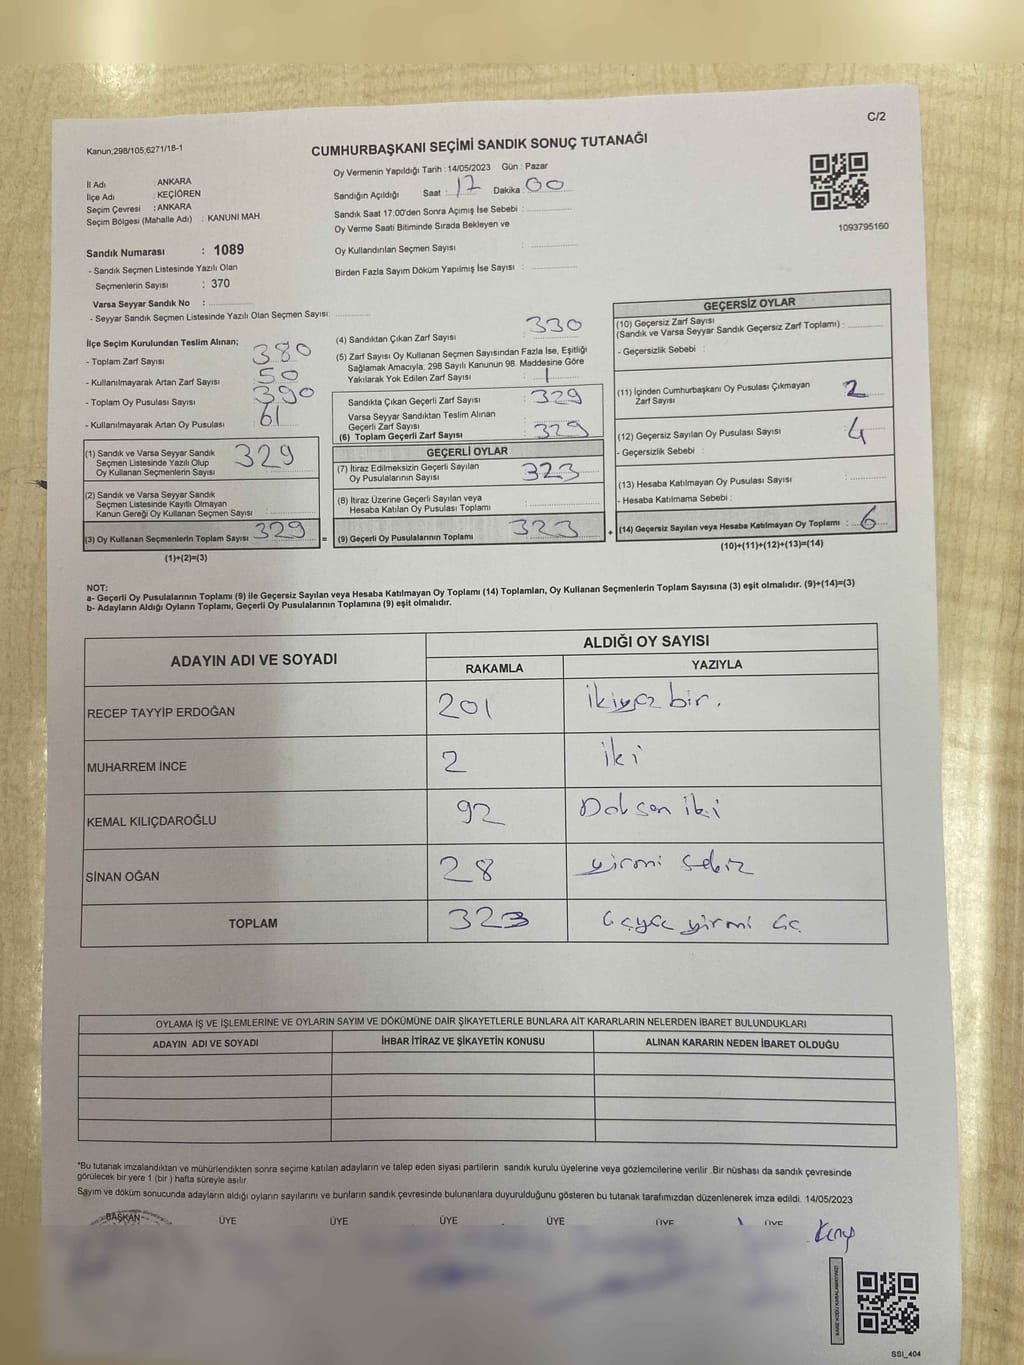 C/2
Kanun;298/105,6271/18-1
CUMHURBAŞKANI SEÇİMİ SANDIK SONUÇ TUTANAĞI
1093795160
İl Adı : ANKARA
İlçe Adı : KEÇİÖREN
Seçim Çevresi : ANKARA
Seçim Bölgesi (Mahalle Adı) : KANUNİ MAH.
Sandık Numarası : 1089
- Sandık Seçmen Listesinde Yazılı Olan
Seçmenlerin Sayısı : 370
Varsa Seyyar Sandık No :
- Seyyar Sandık Seçmen Listesinde Yazılı Olan Seçmen Sayısı:
Oy Vermenin Yapıldığı Tarih : 14/05/2023 Gün : Pazar
Sandığın Açıldığı Saat : 17 Dakika : 00
Sandık Saat 17:00'den Sonra Açımış İse Sebebi :
Oy Verme Saati Bitiminde Sırada Bekleyen ve
Oy Kullandırılan Seçmen Sayısı :
Birden Fazla Sayım Döküm Yapılmış İse Sayısı :
İlçe Seçim Kurulundan Teslim Alınan;
- Toplam Zarf Sayısı : 380
- Kullanılmayarak Artan Zarf Sayısı : 50
- Toplam Oy Pusulası Sayısı : 390
- Kullanılmayarak Artan Oy Pusulası : 61
(1) Sandık ve Varsa Seyyar Sandık
Seçmen Listesinde Yazılı Olup
Oy Kullanan Seçmenlerin Sayısı : 329
(2) Sandık ve Varsa Seyyar Sandık
Seçmen Listesinde Kayıtlı Olmayan
Kanun Gereği Oy Kullanan Seçmen Sayısı :
(3) Oy Kullanan Seçmenlerin Toplam Sayısı : 329
(1)+(2)=(3)
=
(4) Sandıktan Çıkan Zarf Sayısı : 330
(5) Zarf Sayısı Oy Kullanan Seçmen Sayısından Fazla İse, Eşitliği
Sağlamak Amacıyla, 298 Sayılı Kanunun 98. Maddesine Göre
Yakılarak Yok Edilen Zarf Sayısı : 1
Sandıkta Çıkan Geçerli Zarf Sayısı : 329
Varsa Seyyar Sandıktan Teslim Alınan
Geçerli Zarf Sayısı :
(6) Toplam Geçerli Zarf Sayısı : 329
GEÇERLİ OYLAR
(7) İtiraz Edilmeksizin Geçerli Sayılan
Oy Pusulalarının Sayısı : 323
(8) İtiraz Üzerine Geçerli Sayılan veya
Hesaba Katılan Oy Pusulası Toplamı :
(9) Geçerli Oy Pusulalarının Toplamı : 323
+
GEÇERSİZ OYLAR
(10) Geçersiz Zarf Sayısı
(Sandık ve Varsa Seyyar Sandık Geçersiz Zarf Toplamı) :
- Geçersizlik Sebebi :
(11) İçinden Cumhurbaşkanı Oy Pusulası Çıkmayan
Zarf Sayısı : 2
(12) Geçersiz Sayılan Oy Pusulası Sayısı : 4
- Geçersizlik Sebebi :
(13) Hesaba Katılmayan Oy Pusulası Sayısı :
- Hesaba Katılmama Sebebi :
(14) Geçersiz Sayılan veya Hesaba Katılmayan Oy Toplamı : 6
(10)+(11)+(12)+(13)=(14)
NOT:
a- Geçerli Oy Pusulalarının Toplamı (9) ile Geçersiz Sayılan veya Hesaba Katılmayan Oy Toplamı (14) Toplamları, Oy Kullanan Seçmenlerin Toplam Sayısına (3) eşit olmalıdır. (9)+(14)=(3)
b- Adayların Aldığı Oyların Toplamı, Geçerli Oy Pusulalarının Toplamına (9) eşit olmalıdır.
ADAYIN ADI VE SOYADI
ALDIĞI OY SAYISI
RAKAMLA YAZIYLA
RECEP TAYYİP ERDOĞAN 201 ikiyüz bir.
MUHARREM İNCE 2 iki
KEMAL KILIÇDAROĞLU 92 Doksan iki
SİNAN OĞAN 28 yirmi sekiz
TOPLAM 323 üçyüz yirmi üç
OYLAMA İŞ VE İŞLEMLERİNE VE OYLARIN SAYIM VE DÖKÜMÜNE DAİR ŞİKAYETLERLE BUNLARA AİT KARARLARIN NELERDEN İBARET BULUNDUKLARI
ADAYIN ADI VE SOYADI İHBAR İTİRAZ VE ŞİKAYETİN KONUSU ALINAN KARARIN NEDEN İBARET OLDUĞU
*Bu tutanak imzalandıktan ve mühürlendikten sonra seçime katılan adayların ve talep eden siyasi partilerin sandık kurulu üyelerine veya gözlemcilerine verilir .Bir nüshası da sandık çevresinde
görülecek bir yere 1 (bir ) hafta süreyle asılır.
Sayım ve döküm sonucunda adayların aldığı oyların sayılarını ve bunların sandık çevresinde bulunanlara duyurulduğunu gösteren bu tutanak tarafımızdan düzenlenerek imza edildi. 14/05/2023
BAŞKAN ÜYE ÜYE ÜYE ÜYE ÜYE ÜYE
SSI_404